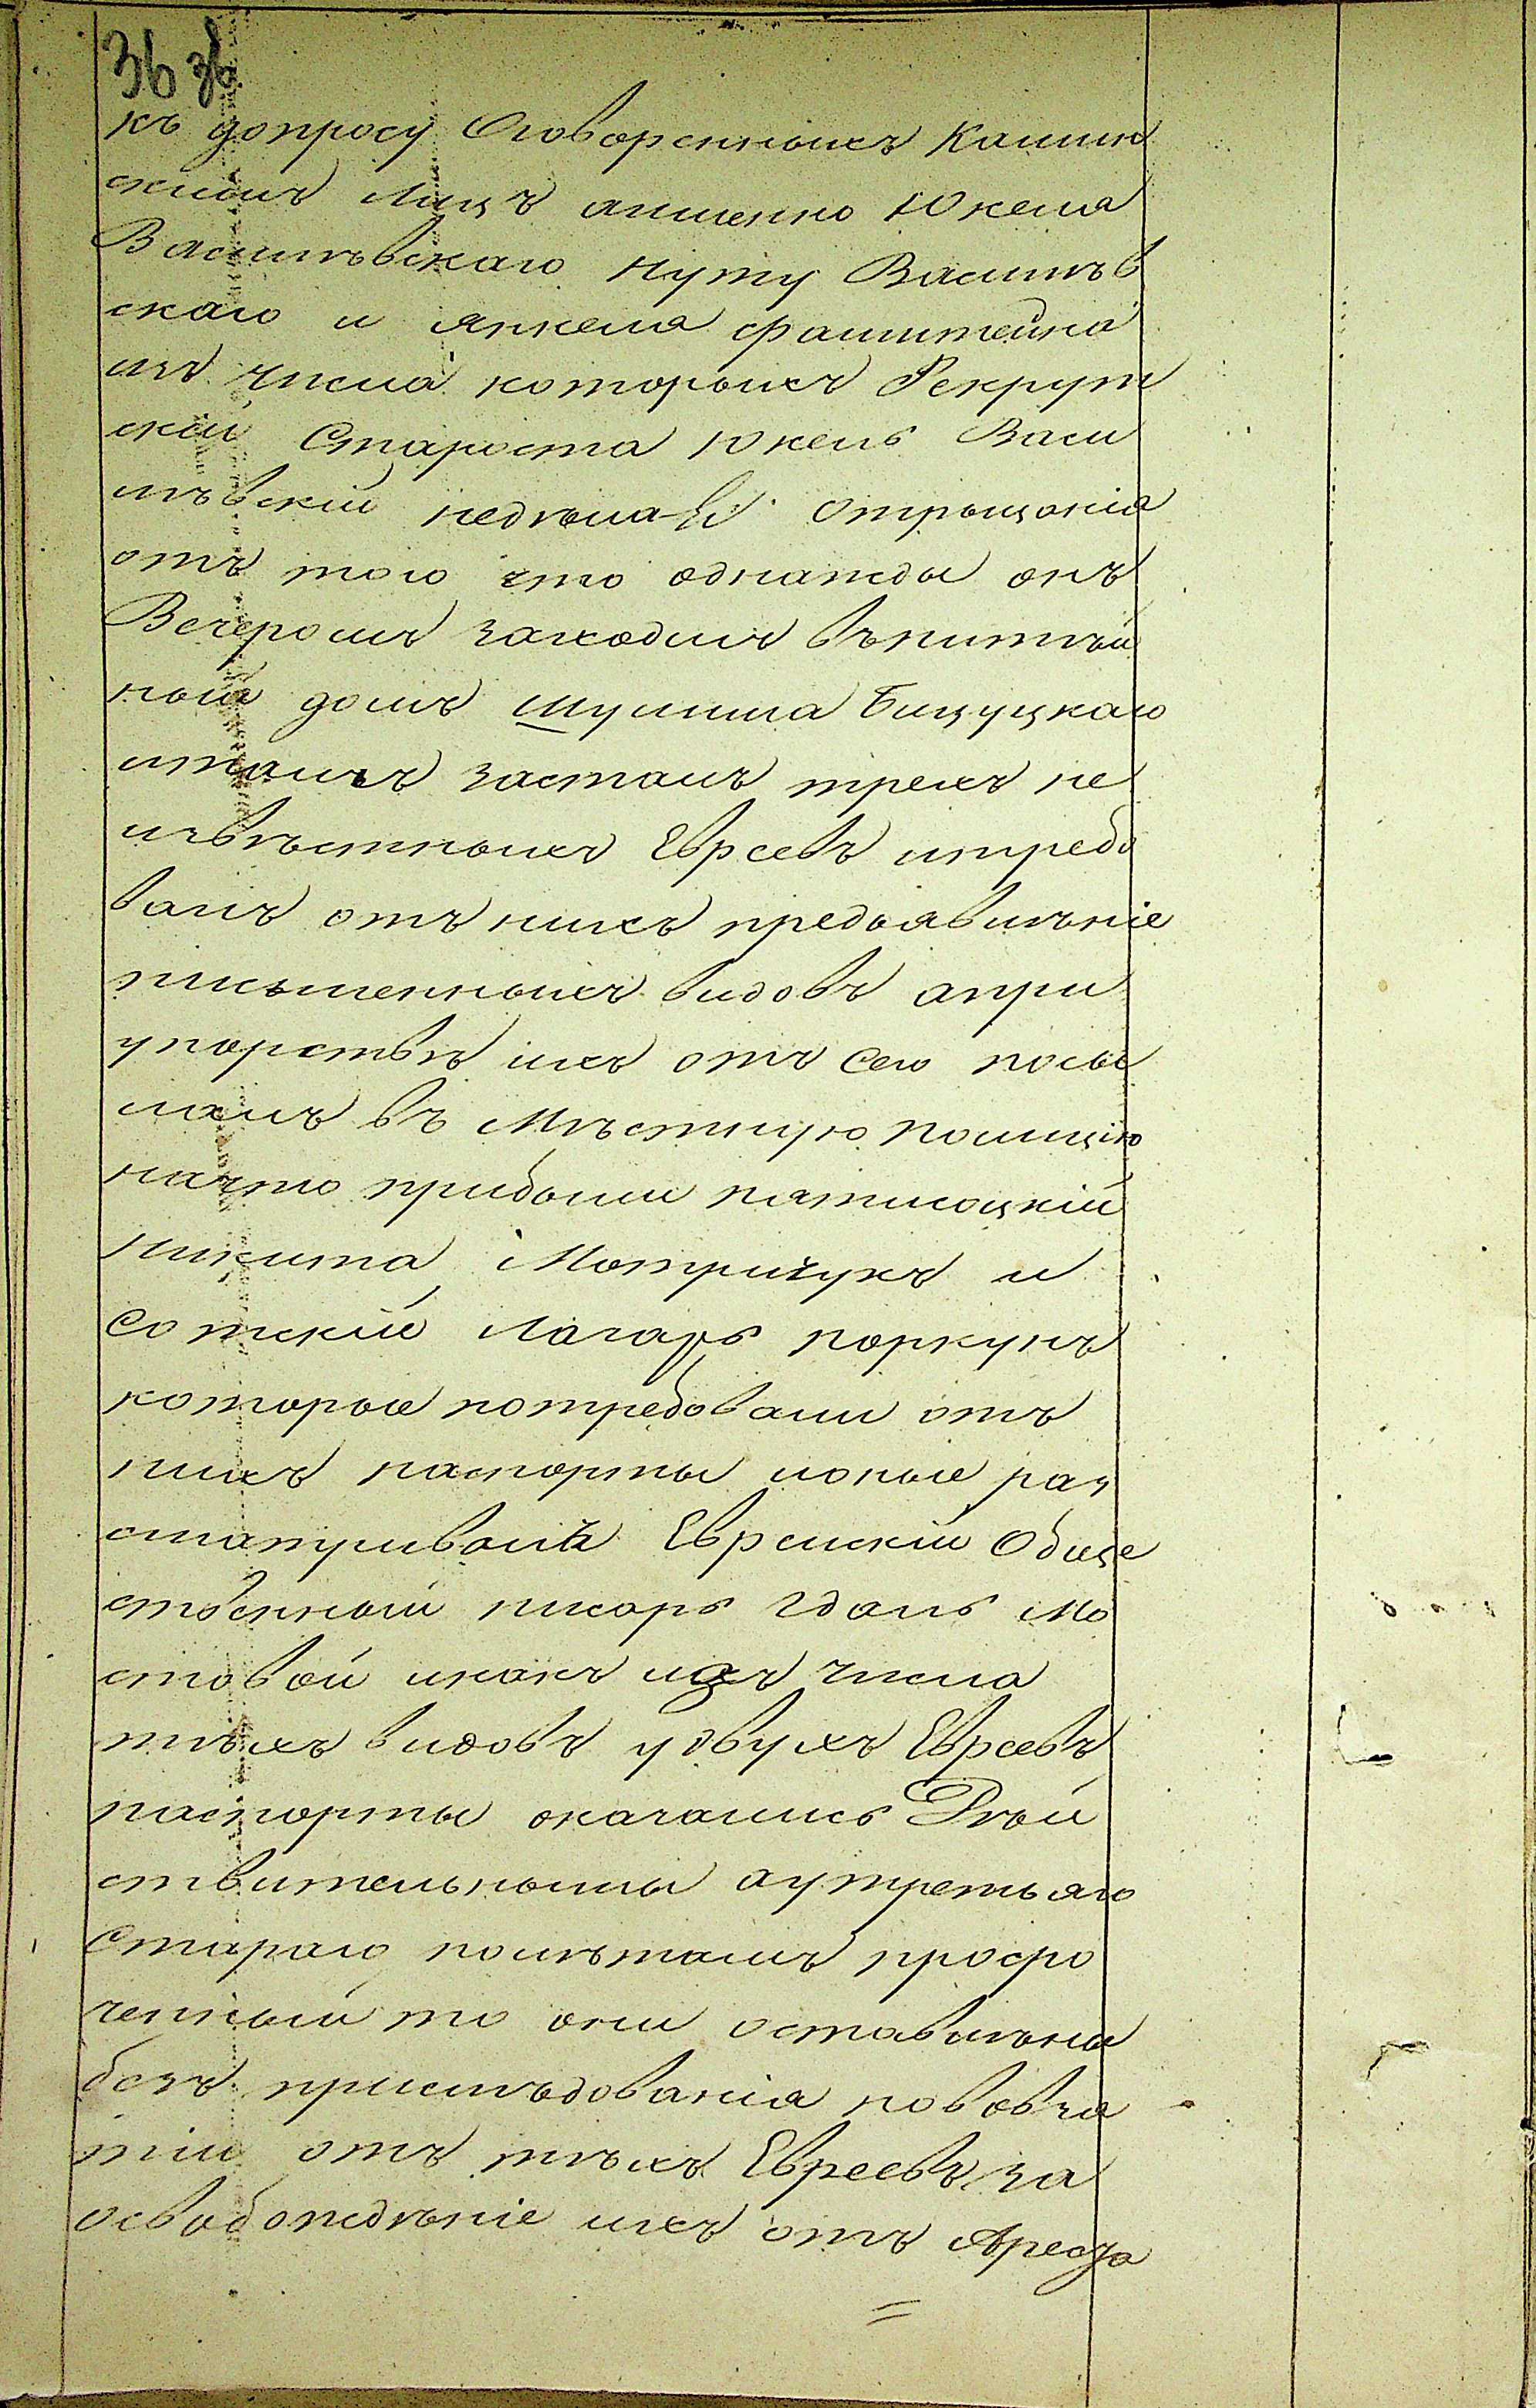 36 36
къ допросу Оговоренныхъ Камин
скимъ Лицъ аименно Юкеля
Василѣвскаго Нуту Василѣв
скаго и Янкеля Фалштейна
изъ числа которыхъ Рекрут
скій Староста Юкель Васи
лѣвскій недѣлаеть отрыцанія
отъ того что однажды онъ
Вечеромъ заходилъ въпитѣй
ный домъ Шулима Бицуцкаго
итамъ засталъ трехъ не
извѣстныхъ Евреевъ итребо
валъ отъ нихъ предъявилѣніе
письменныхъ видовъ апри
упорствѣ ихъ отъ сего посы
лалъ въ Мѣстную Полицію
начто прибыли пятисоцкій
Никита Мотричукъ и
Сотскій Лазарь Коркунъ
которые потребовали отъ
нихъ паспорты ионые раз
сматривалъ Еврейскій Обще
ственный писарь Здань Мо
стовой икакъ изъ числа
тѣхъ видовъ удвухъ Евреевъ
паспорты оказались Дѣй
ствительными аутретьяго
Стараго полѣтамъ просро
ченный то они оставилѣны
безъ прислѣдованія повзя
тіи отъ тѣхъ Евреевъ за
освобождѣніе ихъ отъ Ареста
=